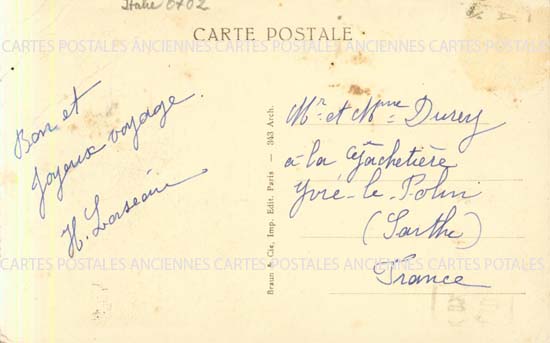 Italie 0702
CARTE POSTALE
CARTES POSTALES ANCIENNES CARTES POSTALES ANCIENNES CARTES POSTALES
Bon et
Joyeux voyage.
H.
Mr et Mme Durey
à la Gâchetière
Yvré-le-Polin
(Sarthe)
France
Braun & Cie, Imp. Edit. Paris — 343 Arch.
CARTES POSTALES ANCIENNES CARTES POSTALES ANCIENNES CARTES POSTALES